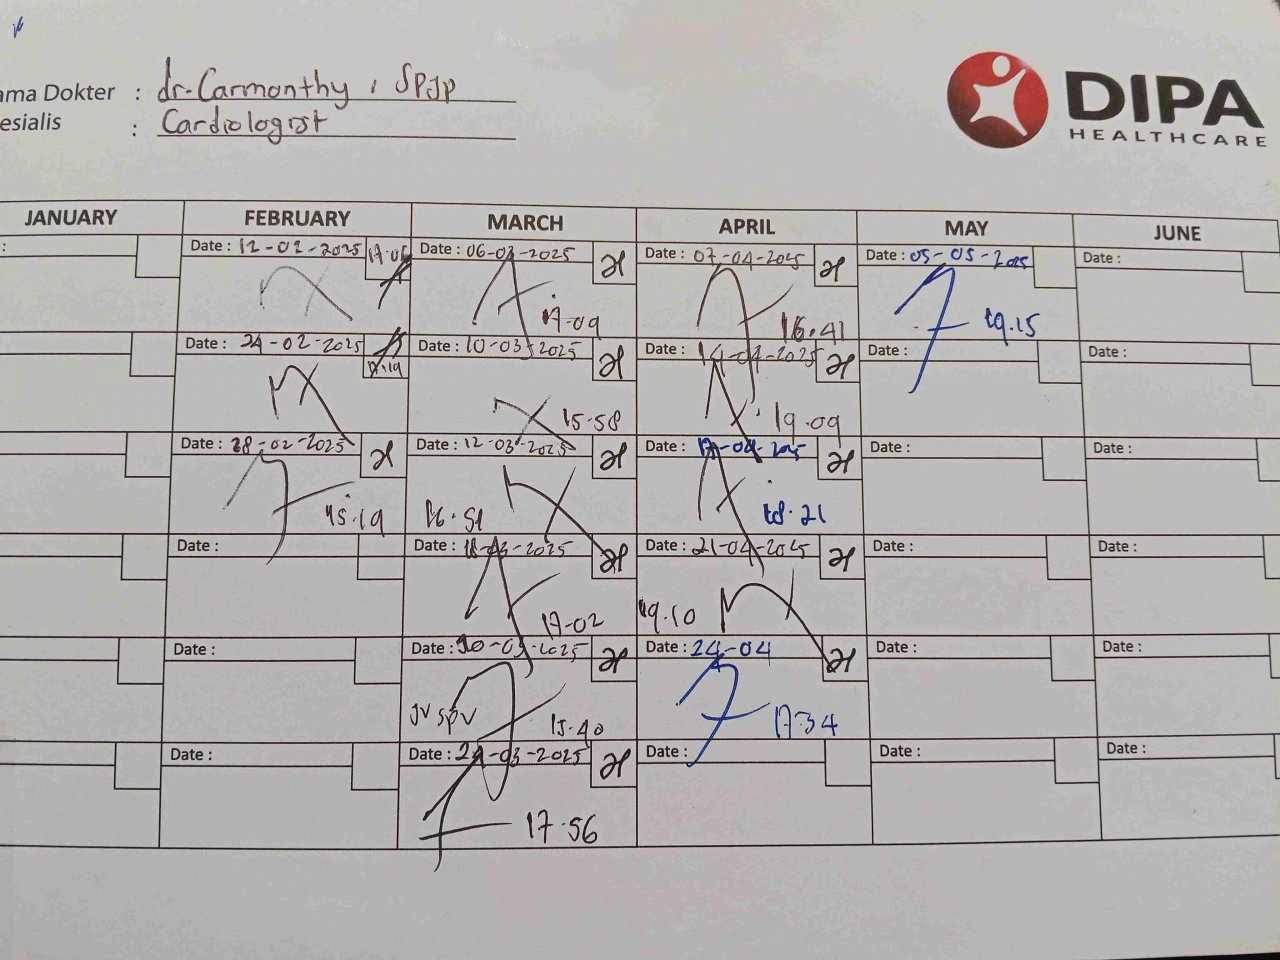 ama Dokter : dr. Carmonthy, SPJP
esialis : Cardiologist
DIPA
HEALTHCARE
JANUARY FEBRUARY MARCH APRIL MAY JUNE
: Date : 12-02-2025 17.06 Date : 06-03-2025 Date : 07-04-2025 Date : 05-05-2025 Date :
17-09 16.41 19.15
Date : 24-02-2025 17.19 Date : 10-03-2025 Date : 14-04-2025 Date : Date :
15.58 19.09
Date : 28-02-2025 Date : 12-03-2025 Date : 17-04-2025 Date : Date :
15.19 16.51 18.21
Date : Date : 18-03-2025 Date : 21-04-2025 Date : Date :
17-02 19.10
Date : Date : 20-03-2025 Date : 24-04 Date : Date :
JV SPV 15.40 17.34
Date : Date : 24-03-2025 Date : Date : Date :
17.56